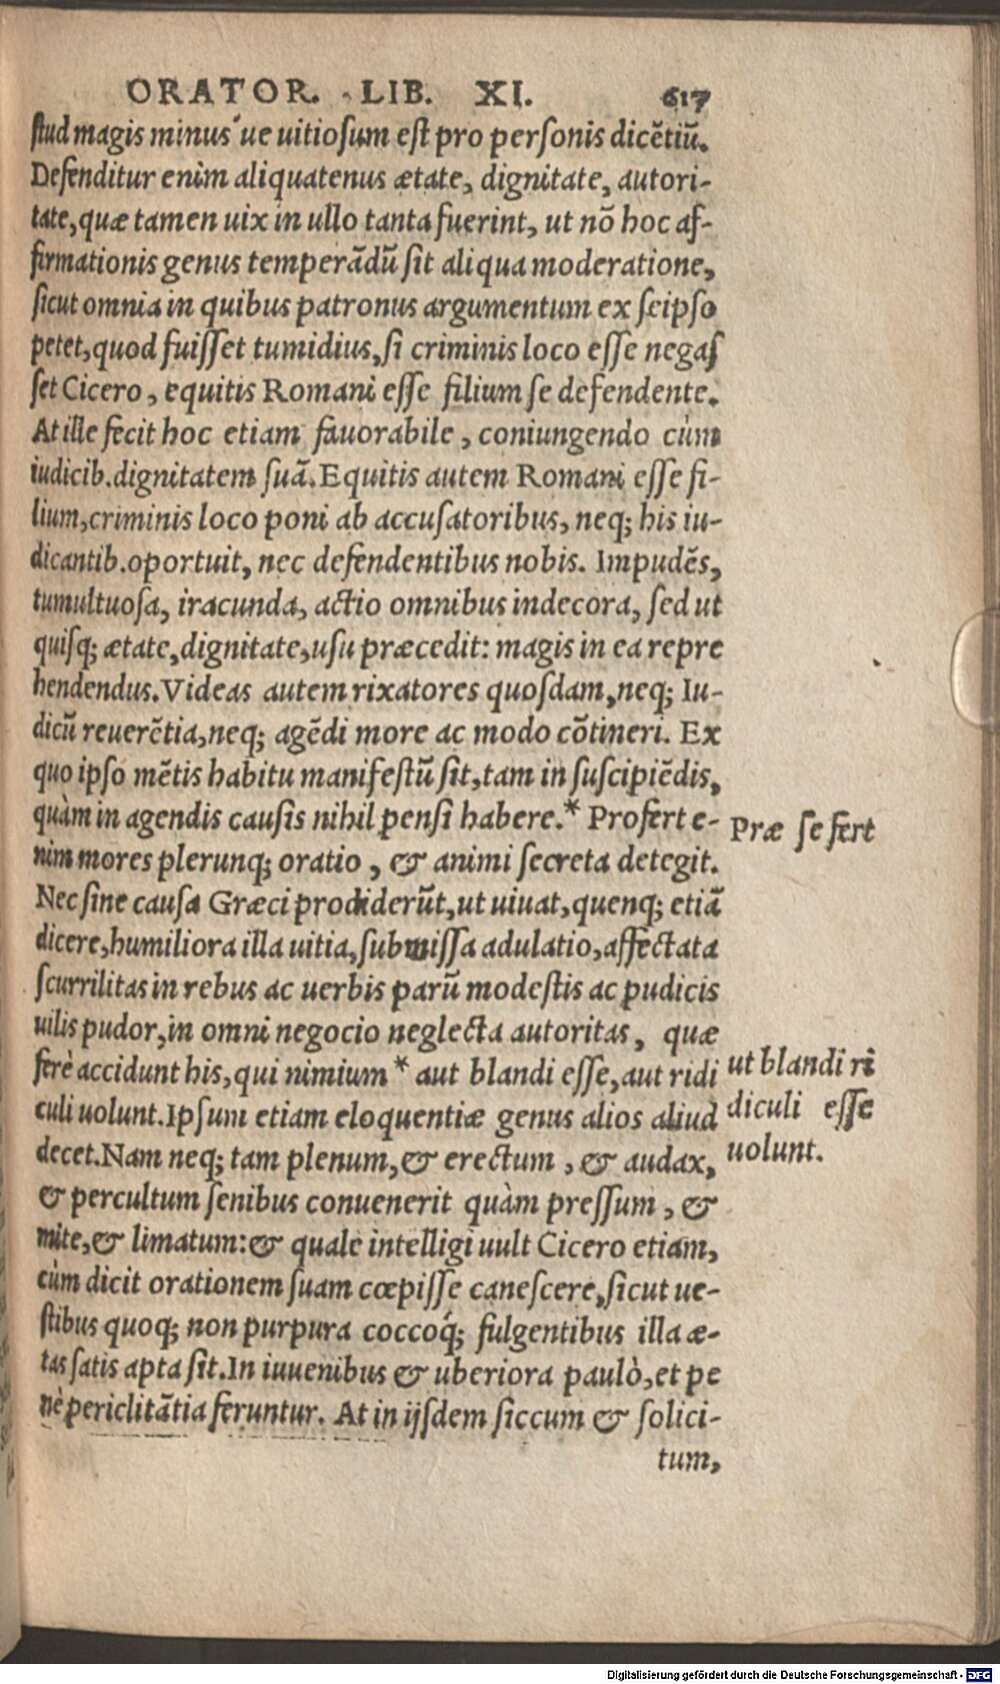 ORATOR. LIB. XI. 617
ſtud magis minus´ue uitioſum eſt pro perſonis dicẽtiũ.
Defenditur enim aliquatenus ætate, dignitate, autori-
tate, quæ tamen uix in ullo tanta fuerint, ut nõ hoc aſ-
firmationis genus temperãdũ ſit aliqua moderatione,
ſicut omnia in quibus patronus argumentum ex ſeipſo
petet, quod fuiſſet tumidius, ſi criminis loco eſſe negaſ
ſet Cicero, equitis Romani eſſe filium ſe defendente.
At ille fecit hoc etiam fauorabile, coniungendo cùm
iudicib. dignitatem ſuã. Equitis autem Romani eſſe fi-
lium, criminis loco poni ab accuſatoribus, neq; his iu-
dicantib. oportuit, nec defendentibus nobis. Impudẽs,
tumultuoſa, iracunda, actio omnibus indecora, ſed ut
quiſq; ætate, dignitate, uſu præcedit: magis in ea repre
hendendus. Videas autem rixatores quoſdam, neq; Iu-
dicũ reuerẽtia, neq; agẽdi more ac modo cõtineri. Ex
quo ipſo mẽtis habitu manifeſtũ ſit, tam in ſuſcipiẽdis,
quàm in agendis cauſis nihil penſi habere.* Profert e-
nim mores plerunq; oratio, & animi ſecreta detegit.
Nec ſine cauſa Græci prodiderũt, ut uiuat, quenq; etiã
dicere, humiliora illa uitia, ſubmiſſa adulatio, affectata
ſcurrilitas in rebus ac uerbis parũ modeſtis ac pudicis
uilis pudor, in omni negocio neglecta autoritas, quæ
ferè accidunt his, qui nimium * aut blandi eſſe, aut ridi
culi uolunt. Ipſum etiam eloquentiæ genus alios aliud
decet. Nam neq; tam plenum, & erectum, & audax,
& percultum ſenibus conuenerit quàm preſſum, &
mite, & limatum: & quale intelligi uult Cicero etiam,
cùm dicit orationem ſuam cœpiſſe caneſcere, ſicut ue-
ſtibus quoq; non purpura coccoq́; fulgentibus illa æ-
tas ſatis apta ſit. In iuuenibus & uberiora paulò, et pe
nè periclitãtia feruntur. At in ijſdem ſiccum & ſolici-
tum,
Præ ſe fert
ut blandi ri
diculi eſſe
uolunt.
Digitalisierung gefördert durch die Deutsche Forschungsgemeinschaft - DFG